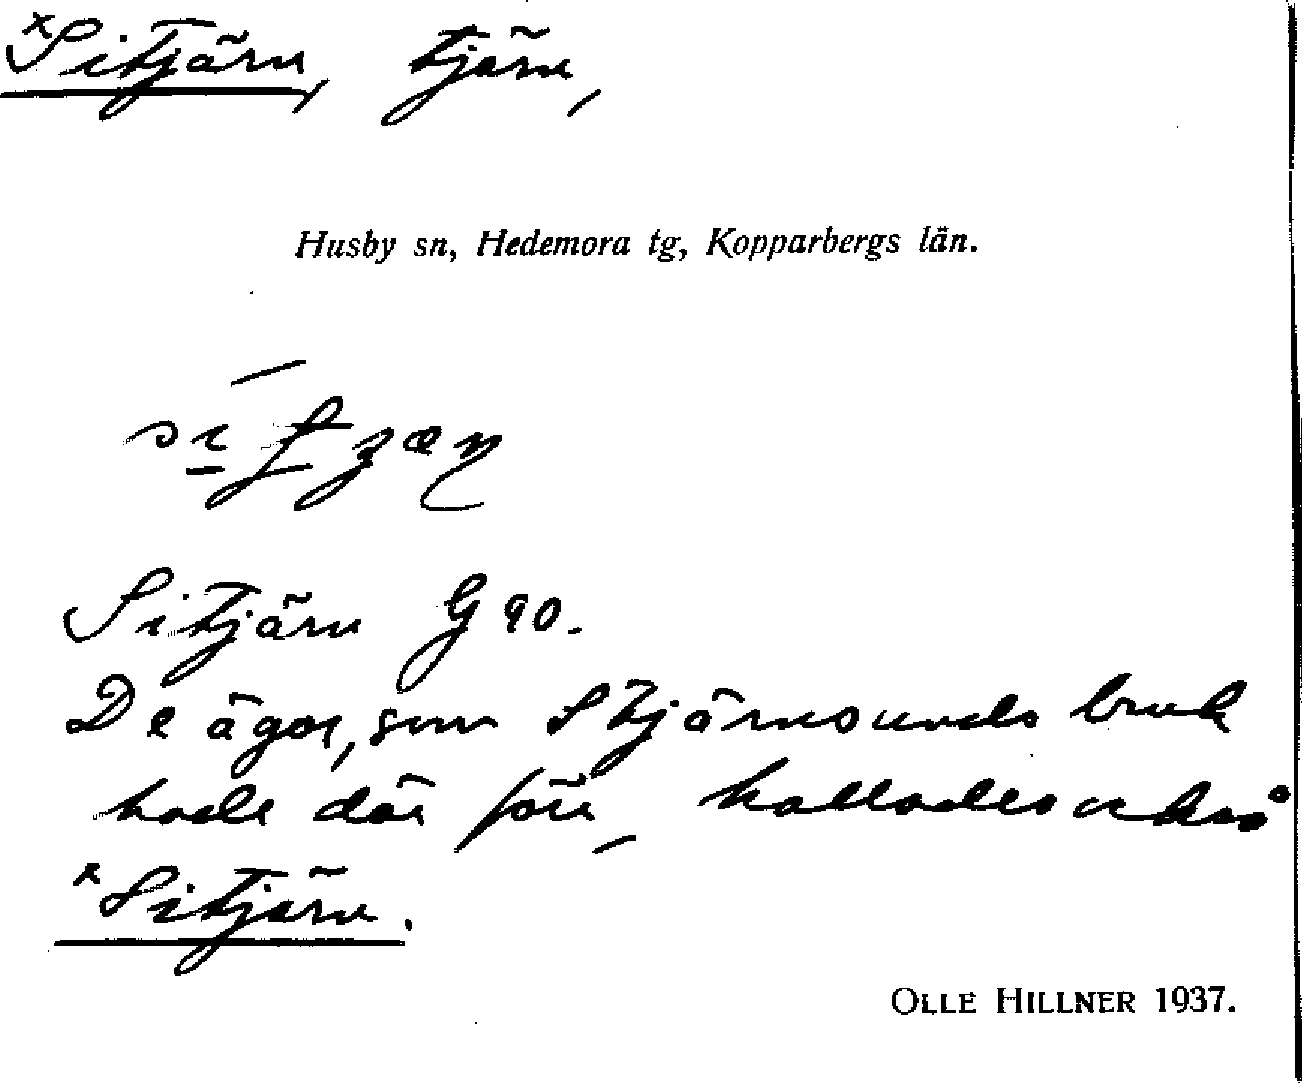 ×Sitjärn, tjärn,
Husby sn, Hedemora tg, Kopparbergs län.
Sitjärn G 90.
De ägor, som Stjärnsunds bruk
hade där förr, kallades också
×Sitjärn.
OLLE HILLNER 1937.